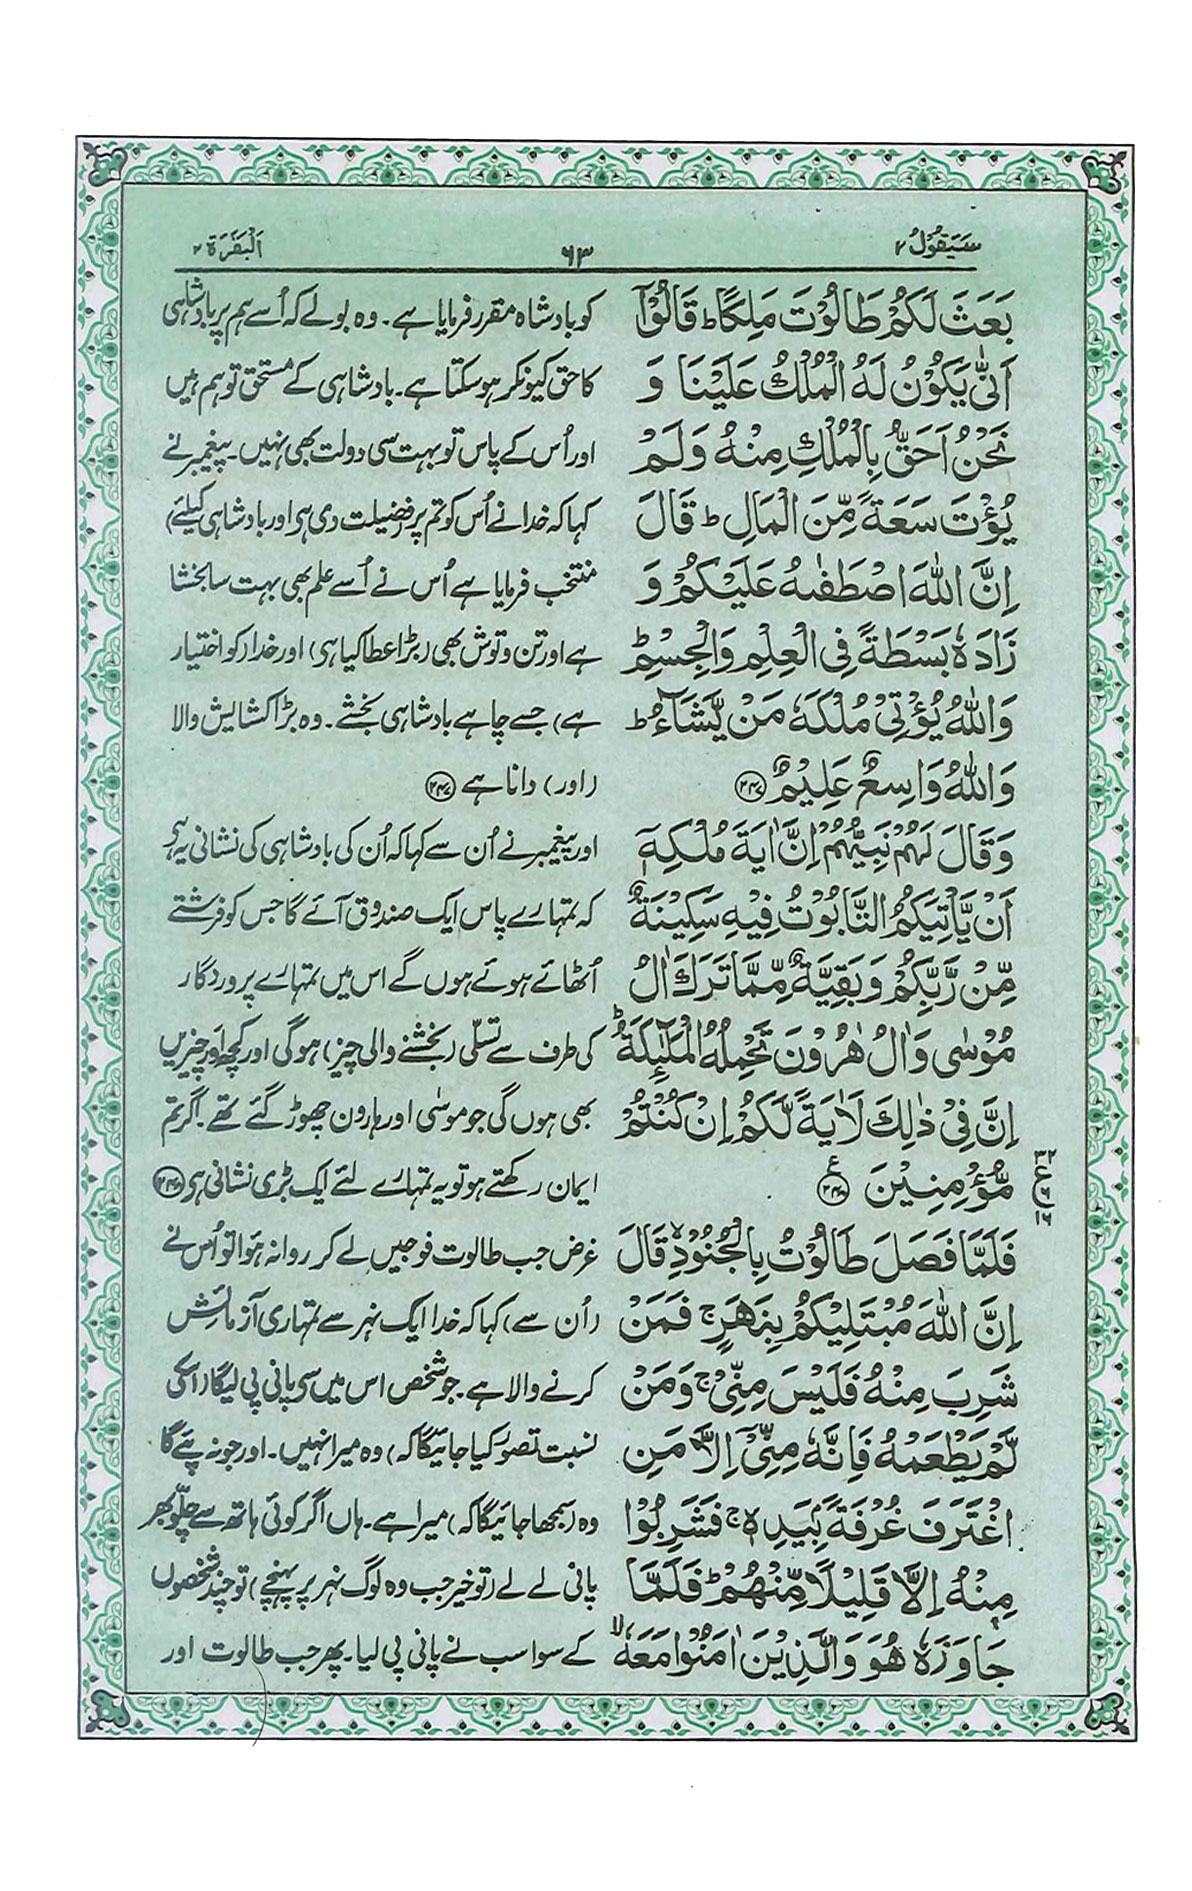 سَيَقُوۡلُ ۲
۶۳
اَلۡبَقَرَة ۲
بَعَثَ لَكُمۡ طَالُوۡتَ مَلِكًا ؕ قَالُوۡۤا
اَنّٰى يَكُوۡنُ لَهُ الۡمُلۡكُ عَلَيۡنَا وَ
نَحۡنُ اَحَقُّ بِالۡمُلۡكِ مِنۡهُ وَلَمۡ
يُؤۡتَ سَعَةً مِّنَ الۡمَالِ ؕ قَالَ
اِنَّ اللّٰهَ اصۡطَفٰٮهُ عَلَيۡكُمۡ وَ
زَادَهٗ بَسۡطَةً فِى الۡعِلۡمِ وَالۡجِسۡمِ ؕ
وَاللّٰهُ يُؤۡتِىۡ مُلۡكَهٗ مَنۡ يَّشَآءُ ؕ
وَاللّٰهُ وَاسِعٌ عَلِيۡمٌ ﴿۲۴۷﴾
وَقَالَ لَهُمۡ نَبِيُّهُمۡ اِنَّ اٰيَةَ مُلۡكِهٖۤ
اَنۡ يَّاۡتِيَكُمُ التَّابُوۡتُ فِيۡهِ سَكِيۡنَةٌ
مِّنۡ رَّبِّكُمۡ وَبَقِيَّةٌ مِّمَّا تَرَكَ اٰلُ
مُوۡسٰى وَاٰلُ هٰرُوۡنَ تَحۡمِلُهُ الۡمَلٰٓئِكَةُ ؕ
اِنَّ فِىۡ ذٰلِكَ لَاٰيَةً لَّكُمۡ اِنۡ كُنۡتُمۡ
مُّؤۡمِنِيۡنَ ﴿۲۴۸﴾ ع
فَلَمَّا فَصَلَ طَالُوۡتُ بِالۡجُنُوۡدِ ۙ قَالَ
اِنَّ اللّٰهَ مُبۡتَلِيۡكُمۡ بِنَهَرٍ ۚ فَمَنۡ
شَرِبَ مِنۡهُ فَلَيۡسَ مِنِّىۡ ۚ وَمَنۡ
لَّمۡ يَطۡعَمۡهُ فَاِنَّهٗ مِنِّىۡۤ اِلَّا مَنِ
اغۡتَرَفَ غُرۡفَةًۢ بِيَدِهٖ ۚ فَشَرِبُوۡا
مِنۡهُ اِلَّا قَلِيۡلًا مِّنۡهُمۡ ؕ فَلَمَّا
جَاوَزَهٗ هُوَ وَالَّذِيۡنَ اٰمَنُوۡا مَعَهٗ ۙ
کو بادشاہ مقرر فرمایا ہے۔ وہ بولے کہ اُسے ہم پر بادشاہی
کا حق کیونکر ہو سکتا ہے۔ بادشاہی کے مستحق تو ہم ہیں
اور اُس کے پاس تو بہت سی دولت بھی نہیں۔ پیغمبر نے
کہا کہ خدا نے اُس کو تم پر فضیلت دی ہے اور بادشاہی کیلئے)
منتخب فرمایا ہے اُس نے اُسے علم بھی بہت سا بخشا
ہے اور تن و توش بھی (بڑا عطا کیا ہے) اور خدا (کو اختیار
ہے) جسے چاہے بادشاہی بخشے۔ وہ بڑا کشایش والا
(اور) دانا ہے ﴿۲۴۷﴾
اور پیغمبر نے اُن سے کہا کہ اُن کی بادشاہی کی نشانی یہ ہے
کہ تمہارے پاس ایک صندوق آئے گا جس کو فرشتے
اُٹھائے ہوئے ہوں گے اس میں تمہارے پروردگار
کی طرف سے تسلّی (بخشنے والی چیز) ہوگی اور کچھ اور چیزیں
بھی ہوں گی جو موسٰی اور ہارون چھوڑ گئے تھے۔ اگر تم
ایمان رکھتے ہو تو یہ تمہارے لئے ایک بڑی نشانی ہے ﴿۲۴۸﴾
غرض جب طالوت فوجیں لے کر روانہ ہوا تو اُس نے
(اُن سے) کہا کہ خدا ایک نہر سے تمہاری آزمائش
کرنے والا ہے۔ جو شخص اس میں سے پانی پی لیگا (اسکی
نسبت تصوّر کیا جائیگا کہ) وہ میرا نہیں۔ اور جو نہ پئے گا
وہ (سمجھا جائیگا کہ) میرا ہے۔ ہاں اگر کوئی ہاتھ سے چلّو بھر
پانی لے لے (تو خیر جب وہ لوگ نہر پر پہنچے) تو چند شخصوں
کے سوا سب نے پانی پی لیا۔ پھر جب طالوت اور
۳۲
ع
۶
۱۶